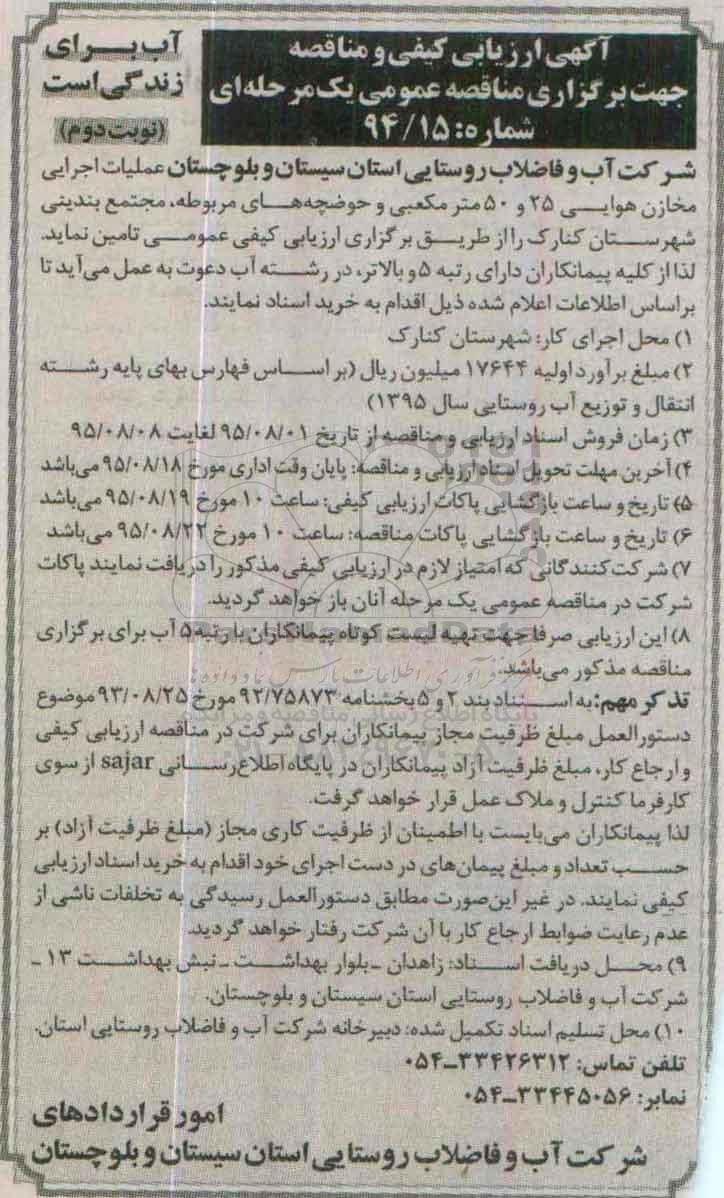 آب برای
زندگی است
(نوبت دوم)
آگهی ارزیابی کیفی و مناقصه
جهت برگزاری مناقصه عمومی یک مرحله‌ای
شماره: ۹۴/۱۵
شرکت آب و فاضلاب روستایی استان سیستان و بلوچستان عملیات اجرایی
مخازن هوایی ۲۵ و ۵۰ متر مکعبی و حوضچه‌های مربوطه، مجتمع بندینی
شهرستان کنارک را از طریق برگزاری ارزیابی کیفی عمومی تامین نماید.
لذا از کلیه پیمانکاران دارای رتبه ۵ و بالاتر، در رشته آب دعوت به عمل می‌آید تا
براساس اطلاعات اعلام شده ذیل اقدام به خرید اسناد نمایند.
۱) محل اجرای کار: شهرستان کنارک
۲) مبلغ برآورد اولیه ۱۷۶۴۴ میلیون ریال (بر اساس فهارس بهای پایه رشته
انتقال و توزیع آب روستایی سال ۱۳۹۵)
۳) زمان فروش اسناد ارزیابی و مناقصه از تاریخ ۹۵/۰۸/۰۱ لغایت ۹۵/۰۸/۰۸
۴) آخرین مهلت تحویل اسناد ارزیابی و مناقصه: پایان وقت اداری مورخ ۹۵/۰۸/۱۸ می‌باشد
۵) تاریخ و ساعت بازگشایی پاکات ارزیابی کیفی: ساعت ۱۰ مورخ ۹۵/۰۸/۱۹ می‌باشد
۶) تاریخ و ساعت بازگشایی پاکات مناقصه: ساعت ۱۰ مورخ ۹۵/۰۸/۲۲ می‌باشد
۷) شرکت‌کنندگانی که امتیاز لازم در ارزیابی کیفی مذکور را دریافت نمایند پاکات
شرکت در مناقصه عمومی یک مرحله آنان باز خواهد گردید.
۸) این ارزیابی صرفا جهت تهیه لیست کوتاه پیمانکاران با رتبه ۵ آب برای برگزاری
مناقصه مذکور می‌باشد.
تذکر مهم: به استناد بند ۲ و ۵ بخشنامه ۹۲/۷۵۸۷۳ مورخ ۹۳/۰۸/۲۵ موضوع
دستورالعمل مبلغ ظرفیت مجاز پیمانکاران برای شرکت در مناقصه ارزیابی کیفی
و ارجاع کار، مبلغ ظرفیت آزاد پیمانکاران در پایگاه اطلاع‌رسانی sajar از سوی
کارفرما کنترل و ملاک عمل قرار خواهد گرفت.
لذا پیمانکاران می‌بایست با اطمینان از ظرفیت کاری مجاز (مبلغ ظرفیت آزاد) بر
حسب تعداد و مبلغ پیمان‌های در دست اجرای خود اقدام به خرید اسناد ارزیابی
کیفی نمایند. در غیر این‌صورت مطابق دستورالعمل رسیدگی به تخلفات ناشی از
عدم رعایت ضوابط ارجاع کار با آن شرکت رفتار خواهد گردید.
۹) محل دریافت اسناد: زاهدان ـ بلوار بهداشت ـ نبش بهداشت ۱۳ ـ
شرکت آب و فاضلاب روستایی استان سیستان و بلوچستان.
۱۰) محل تسلیم اسناد تکمیل شده: دبیرخانه شرکت آب و فاضلاب روستایی استان.
تلفن تماس: ۳۳۴۲۶۳۱۲ـ۰۵۴
نمابر: ۳۳۴۴۵۰۵۶ـ۰۵۴
امور قراردادهای
شرکت آب و فاضلاب روستایی استان سیستان و بلوچستان